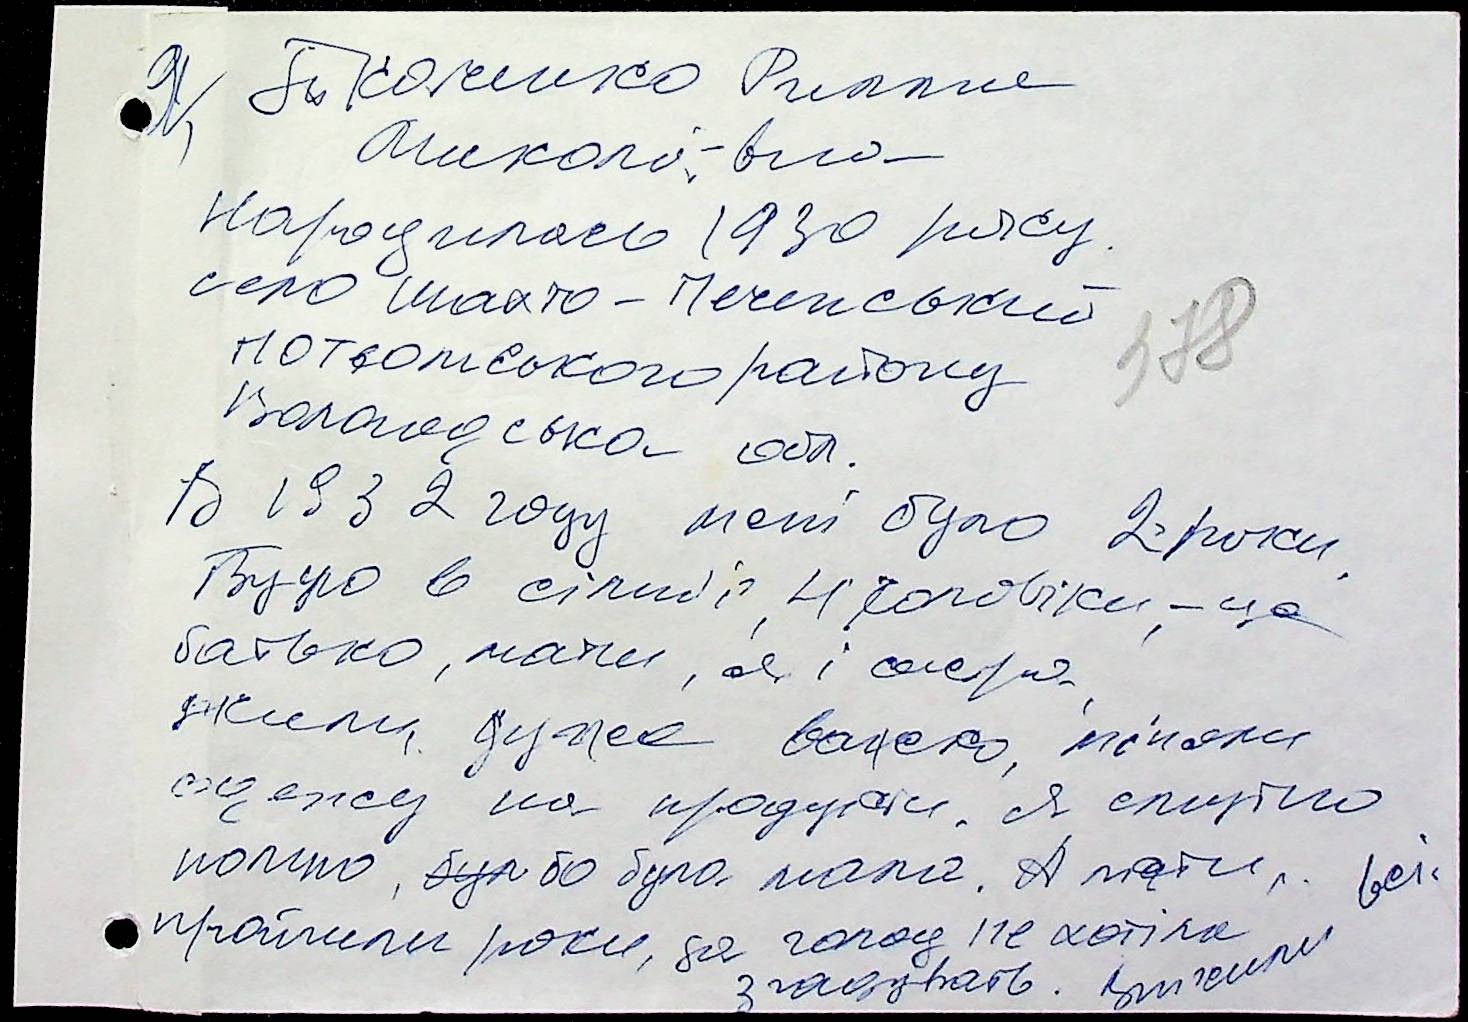 Ткаченко Римма
Миколаївна
Народилась 1930 року.
село Шахто-Печенський
району
Вологодська обл.
В 1932 году мені було 2 роки.
Було в сім'ї, 4 чоловіки, – це
батько, мати, я і сестра,
жили дуже важко, міняли
одежу на продукти. Я смутно
помню, бо була мала. А мати,. всі
пройшли роки, за голод не хотіла
згадувать. Вижили
378